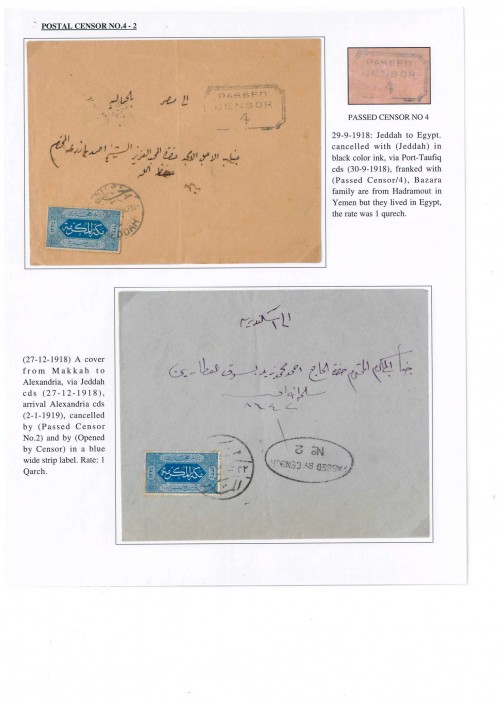 POSTAL CENSOR NO.4 - 2
الى مصر
PASSED
CENSOR
4
PASSED
CENSOR
4
PASSED CENSOR NO 4
29-9-1918: Jeddah to Egypt.
cancelled with (Jeddah) in
black color ink, via Port-Taufiq
cds (30-9-1918), franked with
(Passed Censor/4), Bazara
family are from Hadramout in
Yemen but they lived in Egypt,
the rate was 1 qurech.
JEDDAH
مكة المكرمة
(27-12-1918) A cover
from Makkah to
Alexandria, via Jeddah
cds (27-12-1918),
arrival Alexandria cds
(2-1-1919), cancelled
by (Passed Censor
No.2) and by (Opened
by Censor) in a blue
wide strip label. Rate: 1
Qarch.
الى اسكندريه
PASSED BY CENSOR
No 2
مكة المكرمة